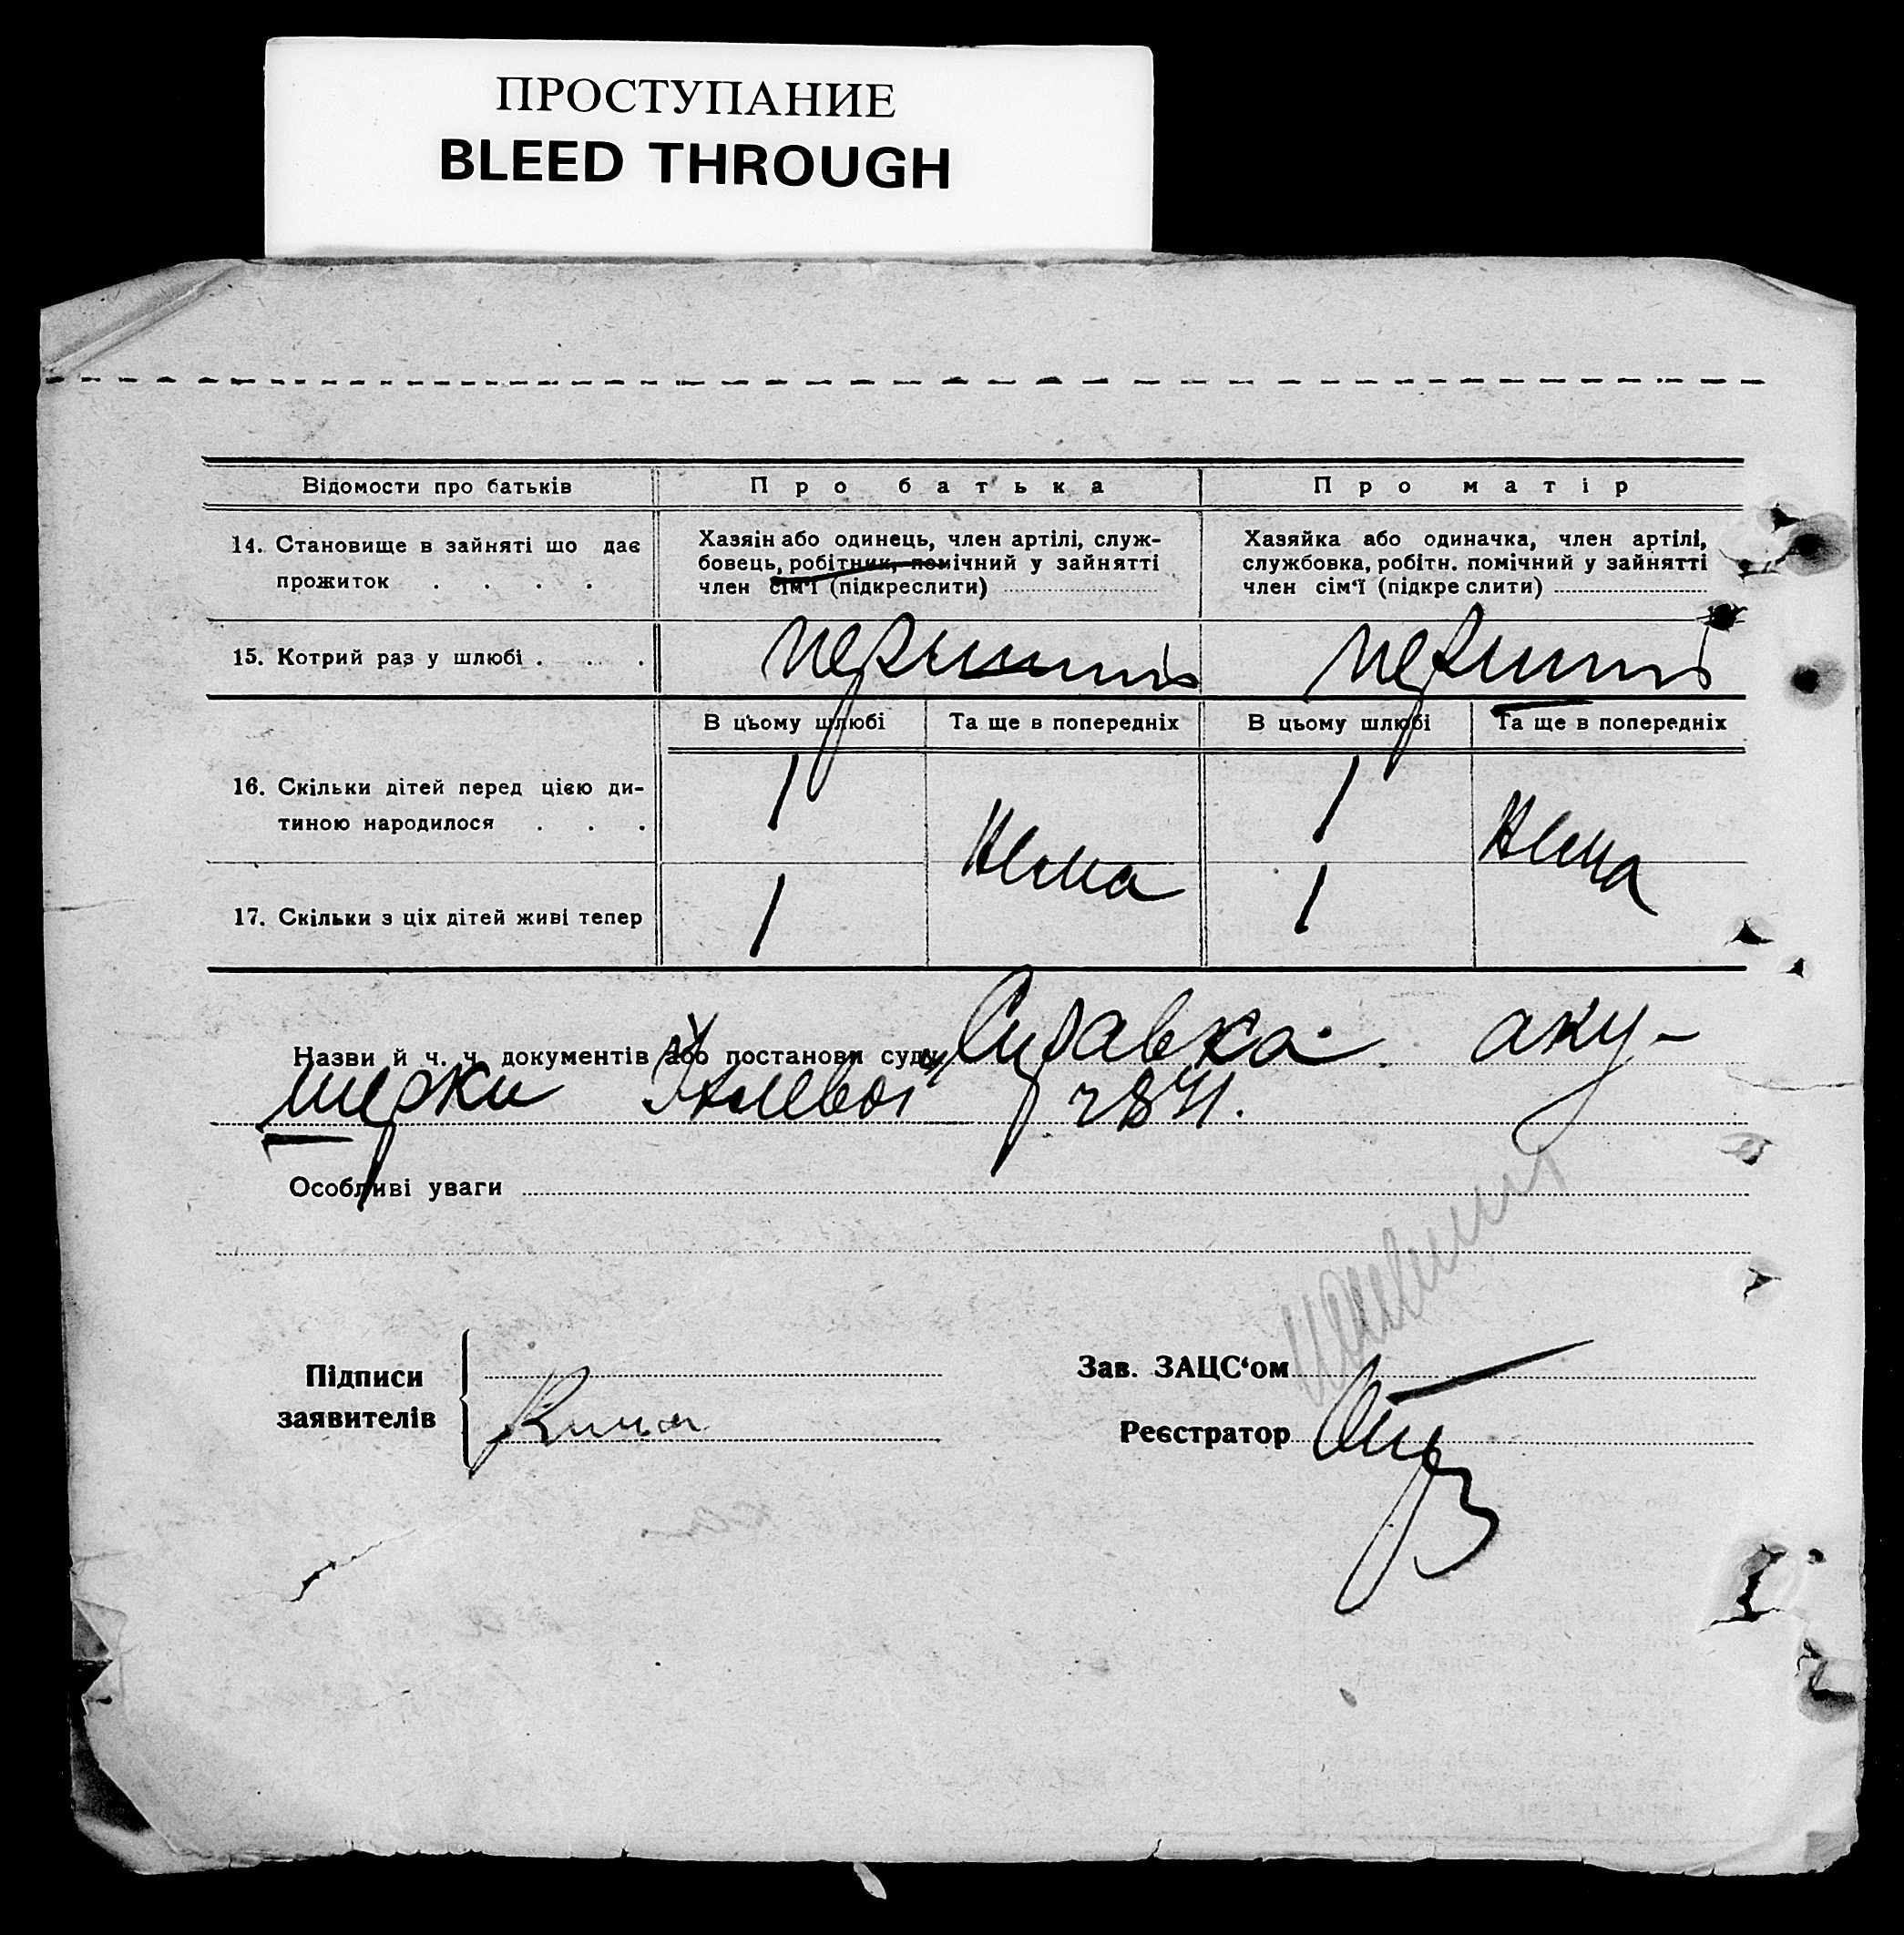 ПРОСТУПАНИЕ
BLEED THROUGH
Відомости про батьків
Про батька
Про матір
14. Становище в зайняті що дає
прожиток . . . .
Хазяін або одинець, член артілі, служ-
бовець, робітник, помічний у зайнятті
член сім'ї (підкреслити)
Хазяйка або одиначка, член артілі,
службовка, робітн. помічний у зайнятті
член сім'ї (підкре слити)
15. Котрий раз у шлюбі . . .
перший
перший
В цьому шлюбі
Та ще в попередніх
В цьому шлюбі
Та ще в попередніх
16. Скільки дітей перед цією ди-
тиною народилося . . .
1
Нема
1
Нема
17. Скільки з ціх дітей живі тепер
1
1
Назви й ч. ч. документів або постанови суду Справка аку-
шерки
Особливі уваги
Підписи
заявителів
Зав. ЗАЦС'ом
Реєстратор